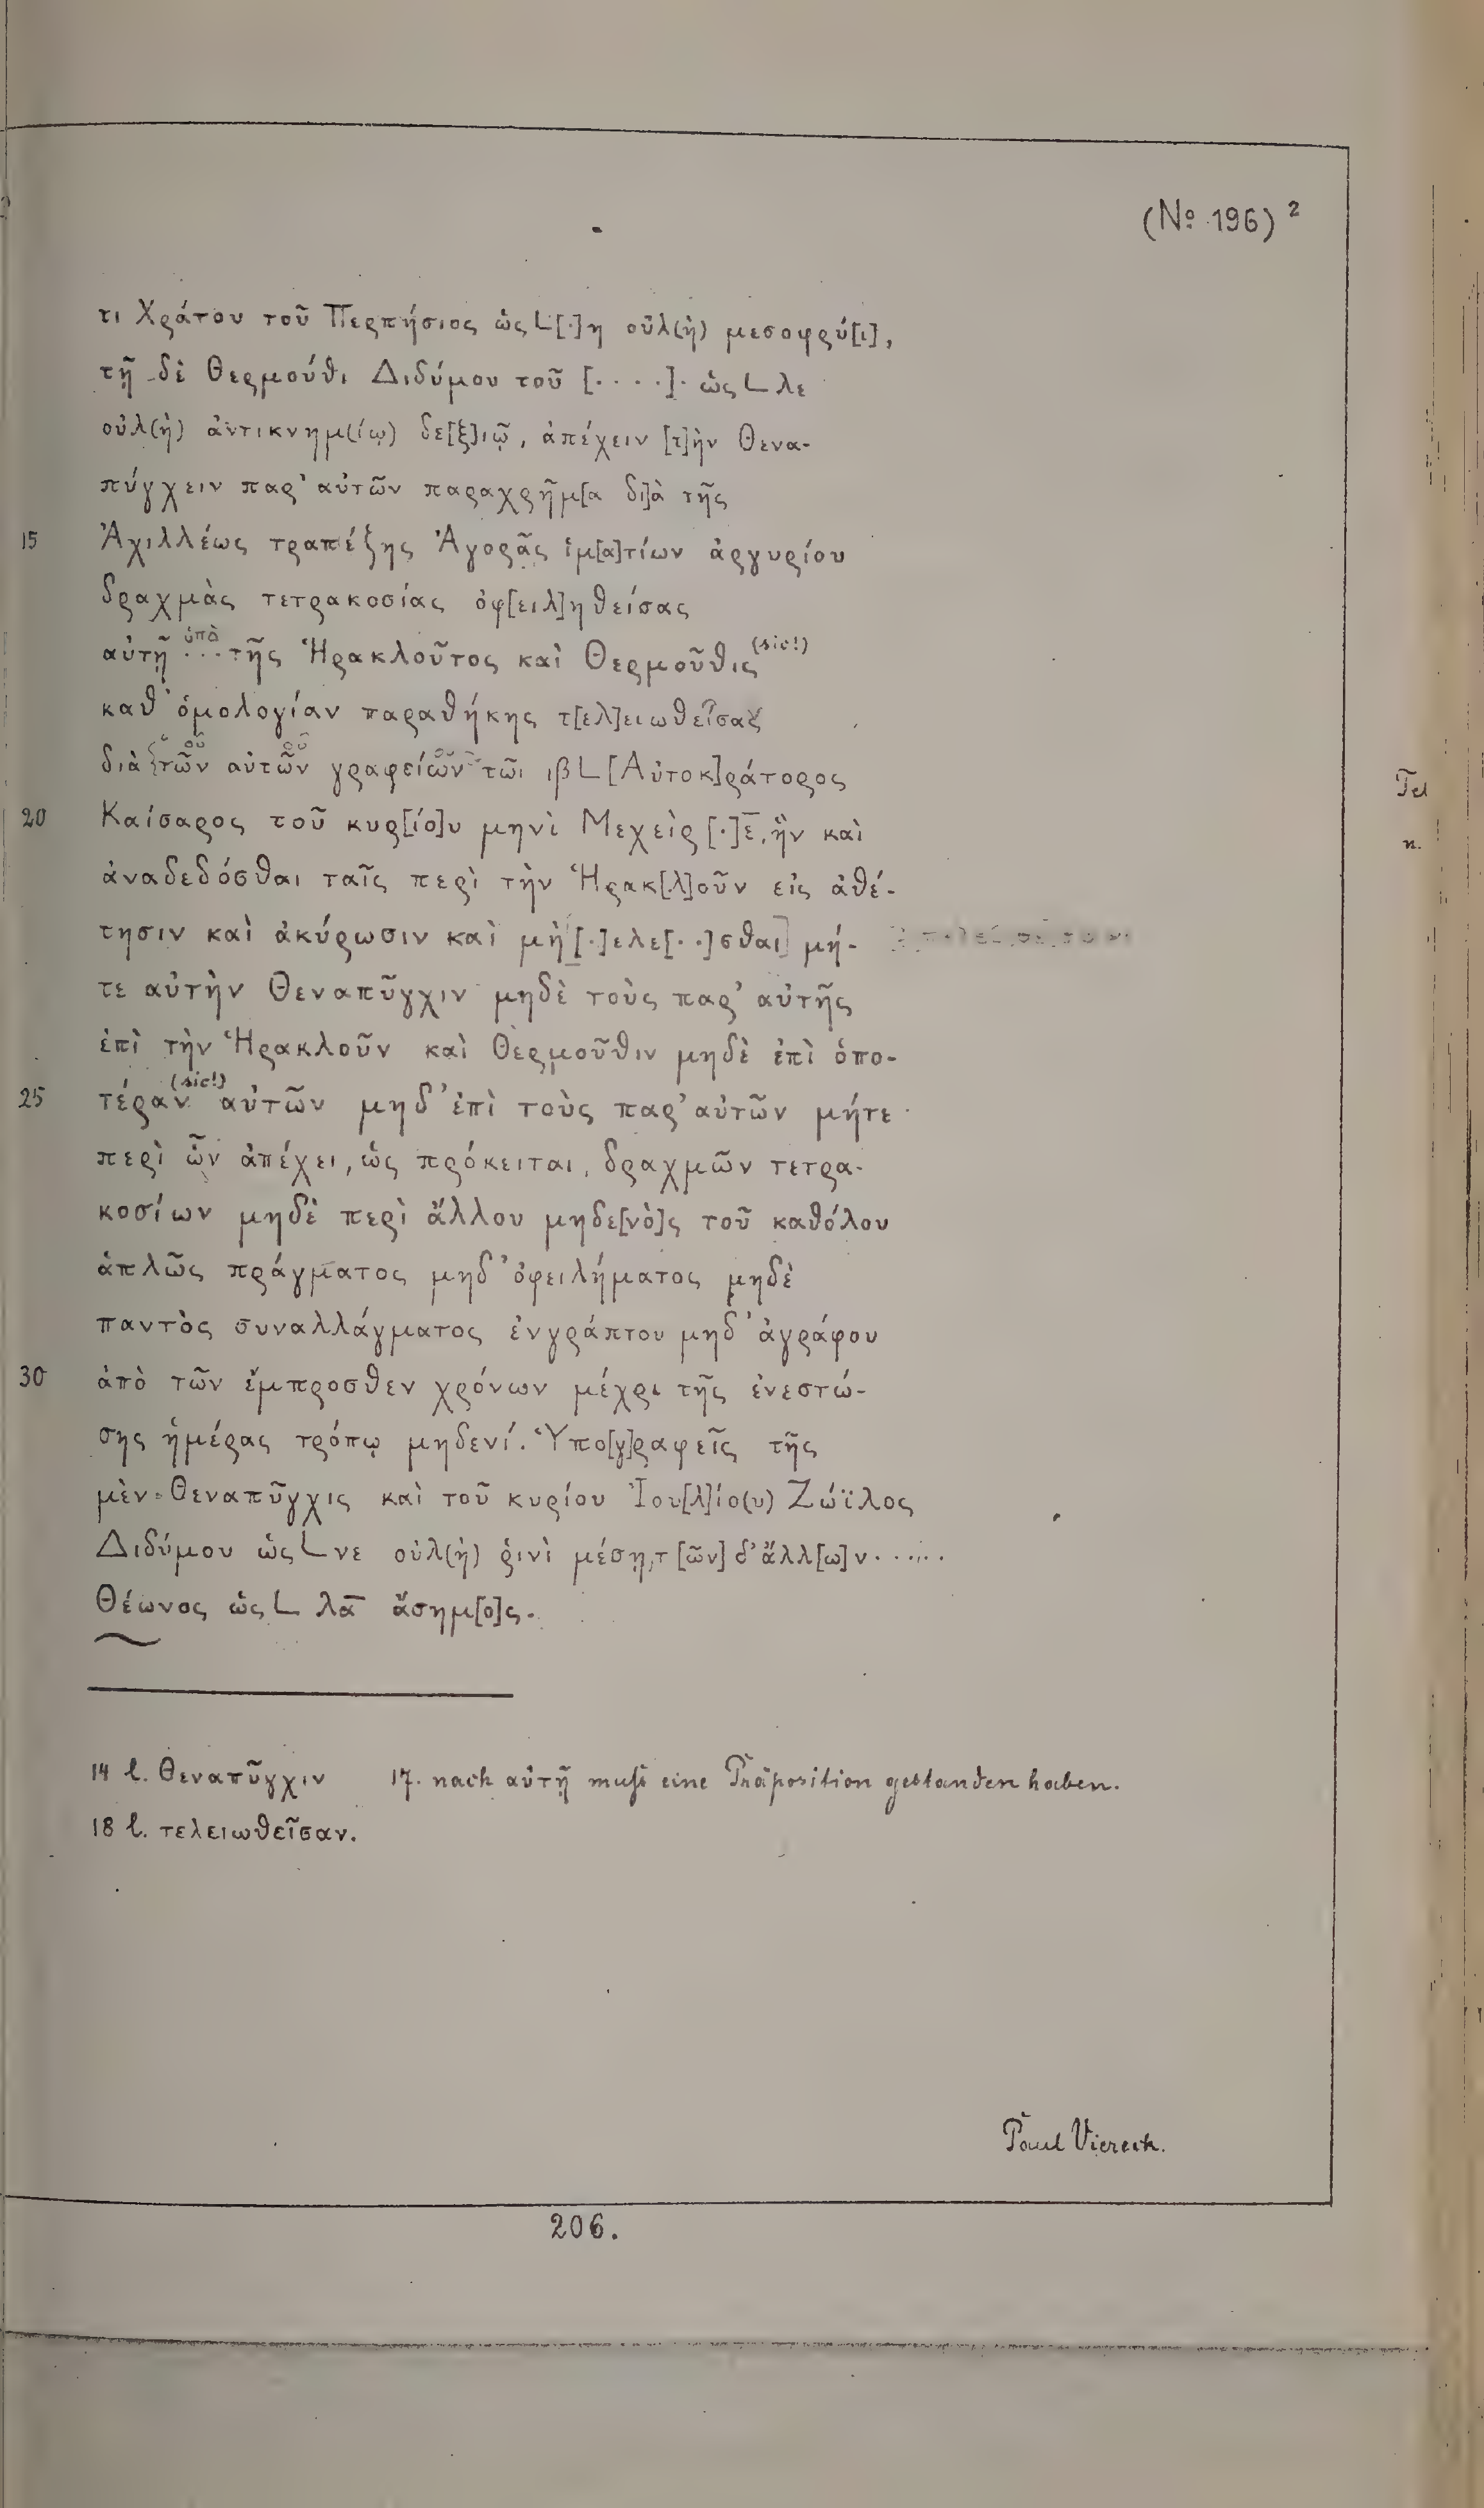 (No 196)²
τι Χράτου τοῦ Περπήσιος ὡς L[·]η οὐλ(ὴ) μεσοφρύ[ι],
τῇ δὲ Θερμούθι Διδύμου τοῦ [····]· ὡς L λε
οὐλ(ὴ) ἀντικνημ(ίῳ) δε[ξ]ιῷ, ἀπέχειν [τ]ὴν Θενα-
πύγχειν παρ' αὐτῶν παραχρῆμ[α δι]ὰ τῆς
15 Ἀχιλλέως τραπέζης Ἀγορᾶς ἱμ[α]τίων ἀργυρίου
δραχμὰς τετρακοσίας ὀφ[ειλ]ηθείσας
αὐτῇ ··· ὑπὸ τῆς Ἡρακλοῦτος καὶ Θερμοῦθις (sic!)
καθ' ὁμολογίαν παραθήκης τ[ελ]ειωθεῖσας
διὰ τῶν αὐτῶν γραφείων τῶι ιβ L [Αὐτοκ]ράτορος
20 Καίσαρος τοῦ κυρ[ίο]υ μηνὶ Μεχεὶρ [·]ε̅, ἣν καὶ
ἀναδεδόσθαι ταῖς περὶ τὴν Ἡρακ[λ]οῦν εἰς ἀθέ-
τησιν καὶ ἀκύρωσιν καὶ μὴ [·]ελε[··]σθαι μή-
τε αὐτὴν Θεναπῦγχιν μηδὲ τοὺς παρ' αὐτῆς
ἐπὶ τὴν Ἡρακλοῦν καὶ Θερμοῦθιν μηδὲ ἐπὶ ὁπο-
25 τέραν (sic!) αὐτῶν μηδ' ἐπὶ τοὺς παρ' αὐτῶν μήτε
περὶ ὧν ἀπέχει, ὡς πρόκειται, δραχμῶν τετρα-
κοσίων μηδὲ περὶ ἄλλου μηδε[νὸ]ς τοῦ καθόλου
ἁπλῶς πράγματος μηδ' ὀφειλήματος μηδὲ
παντὸς συναλλάγματος ἐνγράπτου μηδ' ἀγράφου
30 ἀπὸ τῶν ἔμπροσθεν χρόνων μέχρι τῆς ἐνεστώ-
σης ἡμέρας τρόπῳ μηδενί. Ὑπο[γ]ραφεῖς τῆς
μὲν Θεναπῦγχις καὶ τοῦ κυρίου Ἰου[λ]ίο(υ) Ζώϊλος
Διδύμου ὡς L νε οὐλ(ὴ) ῥινὶ μέσῃ, τ[ῶν] δ' ἄλλ[ω]ν ······
Θέωνος ὡς L λα̅ ἄσημ[ο]ς.
14 l. Θεναπῦγχιν 17. nach αὐτῇ muß eine Präposition gestanden haben.
18 l. τελειωθεῖσαν.
Paul Viereck.
206.